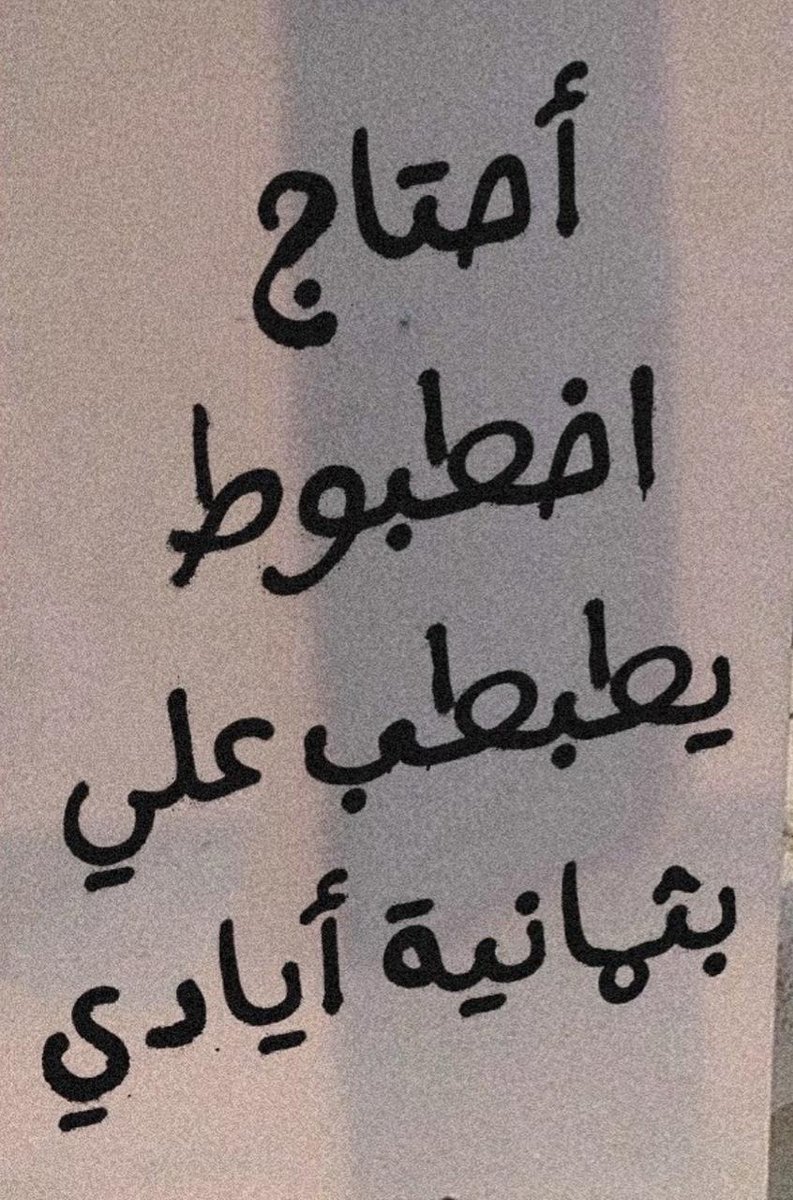 أحتاج
اخطبوط
يطبطب علي
بثمانية أيادي